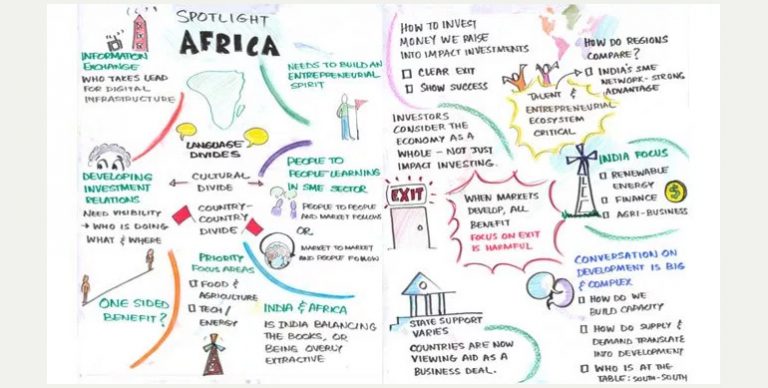 SPOTLIGHT
AFRICA
INFORMATION
EXCHANGE
WHO TAKES LEAD
FOR DIGITAL
INFRASTRUCTURE
NEEDS TO BUILD AN
ENTREPRENEURIAL
SPIRIT
LANGUAGE
DIVIDES
CULTURAL
DIVIDE
COUNTRY-
COUNTRY
DIVIDE
DEVELOPING
INVESTMENT
RELATIONS
NEED VISIBILITY
→ WHO IS DOING
WHAT & WHERE
PEOPLE TO
PEOPLE LEARNING
IN SME SECTOR
PEOPLE TO PEOPLE
AND MARKET FOLLOWS
OR
MARKET TO MARKET
AND PEOPLE FOLLOW
ONE SIDED
BENEFIT?
PRIORITY
FOCUS AREAS
FOOD &
AGRICULTURE
TECH/
ENERGY
INDIA & AFRICA
IS INDIA BALANCING
THE BOOKS, OR
BEING OVERLY
EXTRACTIVE
HOW TO INVEST
MONEY WE RAISE
INTO IMPACT INVESTMENTS
CLEAR EXIT
SHOW SUCCESS
HOW DO REGIONS
COMPARE?
INDIA'S SME
NETWORK - STRONG
ADVANTAGE
TALENT &
ENTREPRENEURIAL
ECOSYSTEM
CRITICAL
INVESTORS
CONSIDER THE
ECONOMY AS A
WHOLE - NOT JUST
IMPACT INVESTING.
EXIT
WHEN MARKETS
DEVELOP, ALL
BENEFIT
FOCUS ON EXIT
IS HARMFUL
INDIA FOCUS
RENEWABLE
ENERGY
FINANCE
AGRI-BUSINESS
$
STATE SUPPORT
VARIES
COUNTRIES ARE NOW
VIEWING AID AS A
BUSINESS DEAL.
CONVERSATION ON
DEVELOPMENT IS BIG
& COMPLEX
HOW DO WE
BUILD CAPACITY
HOW DO SUPPLY &
DEMAND TRANSLATE
INTO DEVELOPMENT
WHO IS AT THE
TABLE: SOUTH-SOUTH